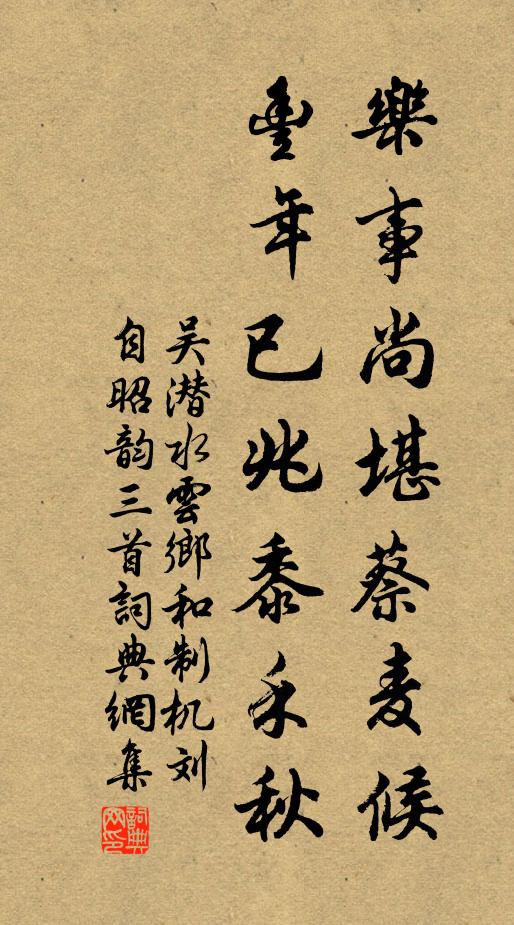 樂事尚堪蔡麦候
豊年已兆黍禾秋
吴潜水雲鄉和制机刘
自昭韵三首詞典網集
詞典網印